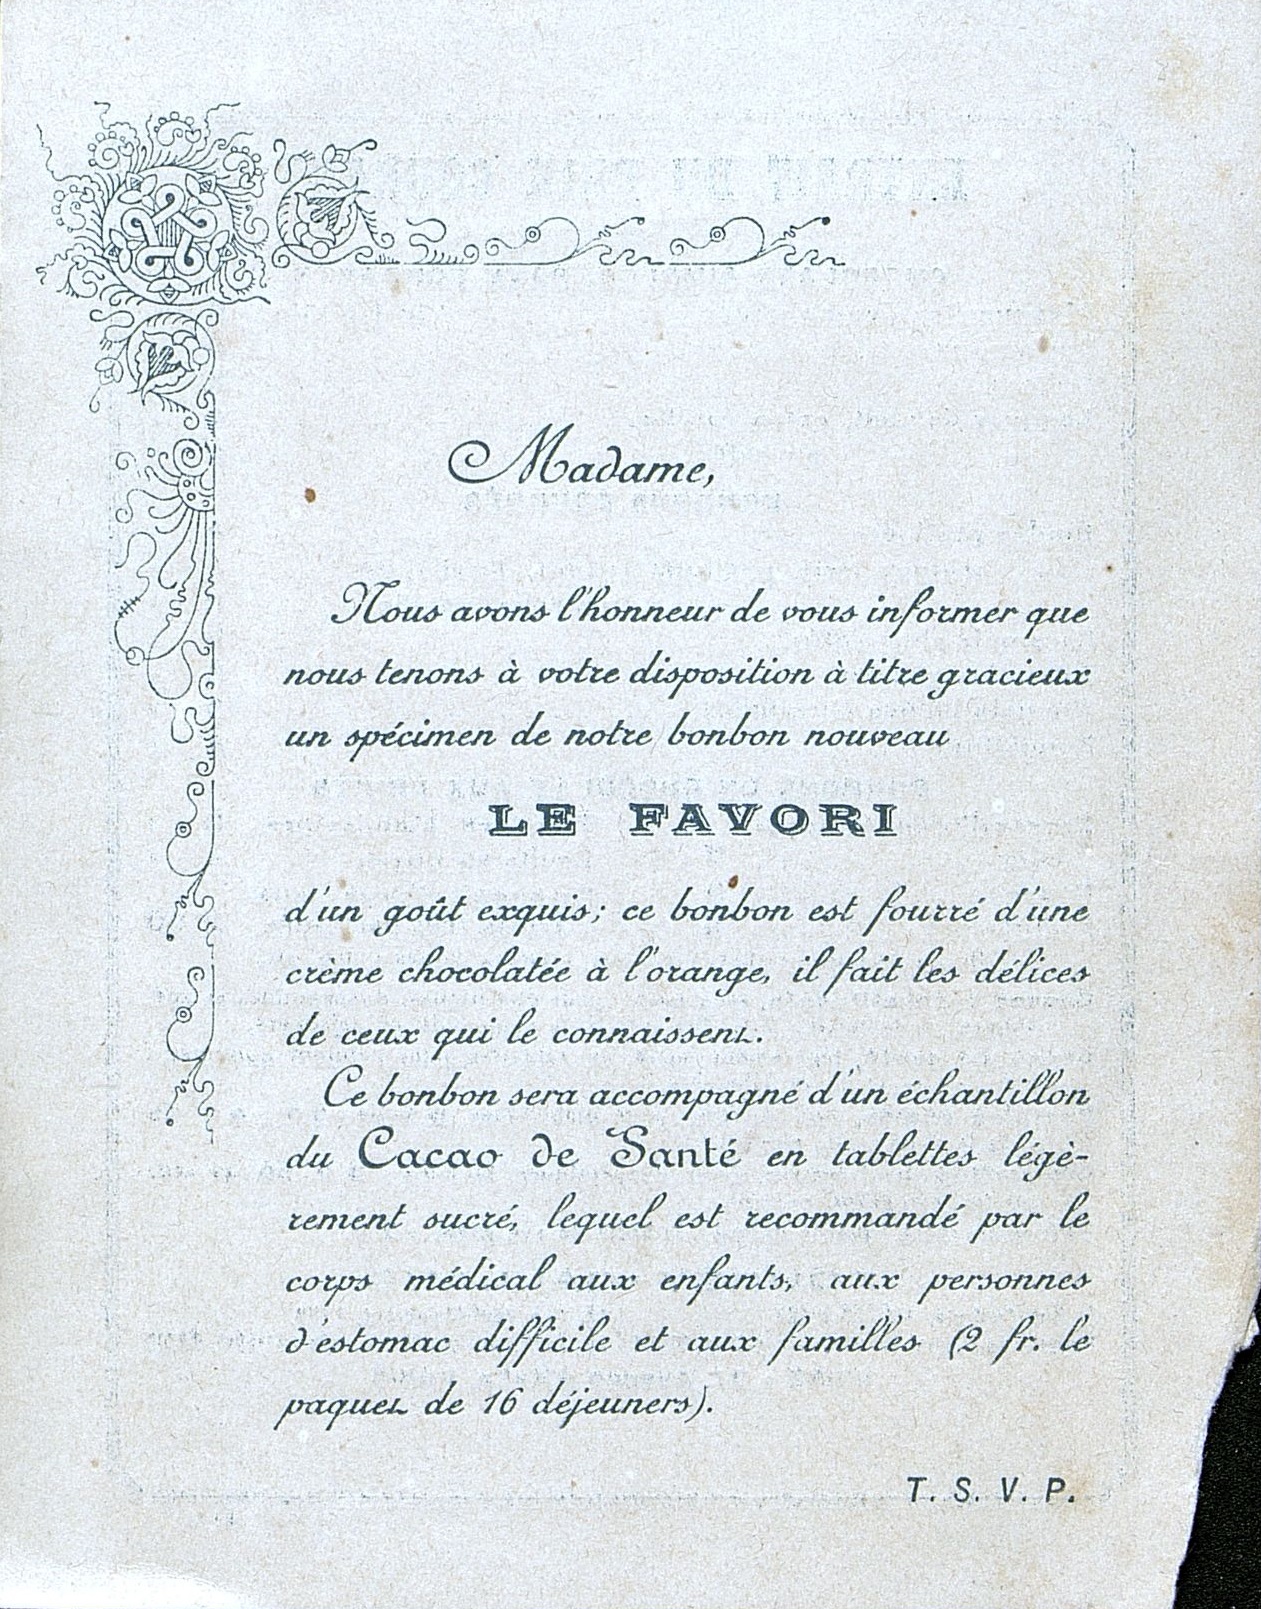 Madame,
Nous avons l'honneur de vous informer que
nous tenons à votre disposition à titre gracieux
un spécimen de notre bonbon nouveau
LE FAVORI
d'un goût exquis; ce bonbon est fourré d'une
crème chocolatée à l'orange, il fait les délices
de ceux qui le connaissent.
Ce bonbon sera accompagné d'un échantillon
du Cacao de Santé en tablettes légè-
rement sucré, lequel est recommandé par le
corps médical aux enfants, aux personnes
d'estomac difficile et aux familles (2 fr. le
paquet de 16 déjeuners).
T. S. V. P.